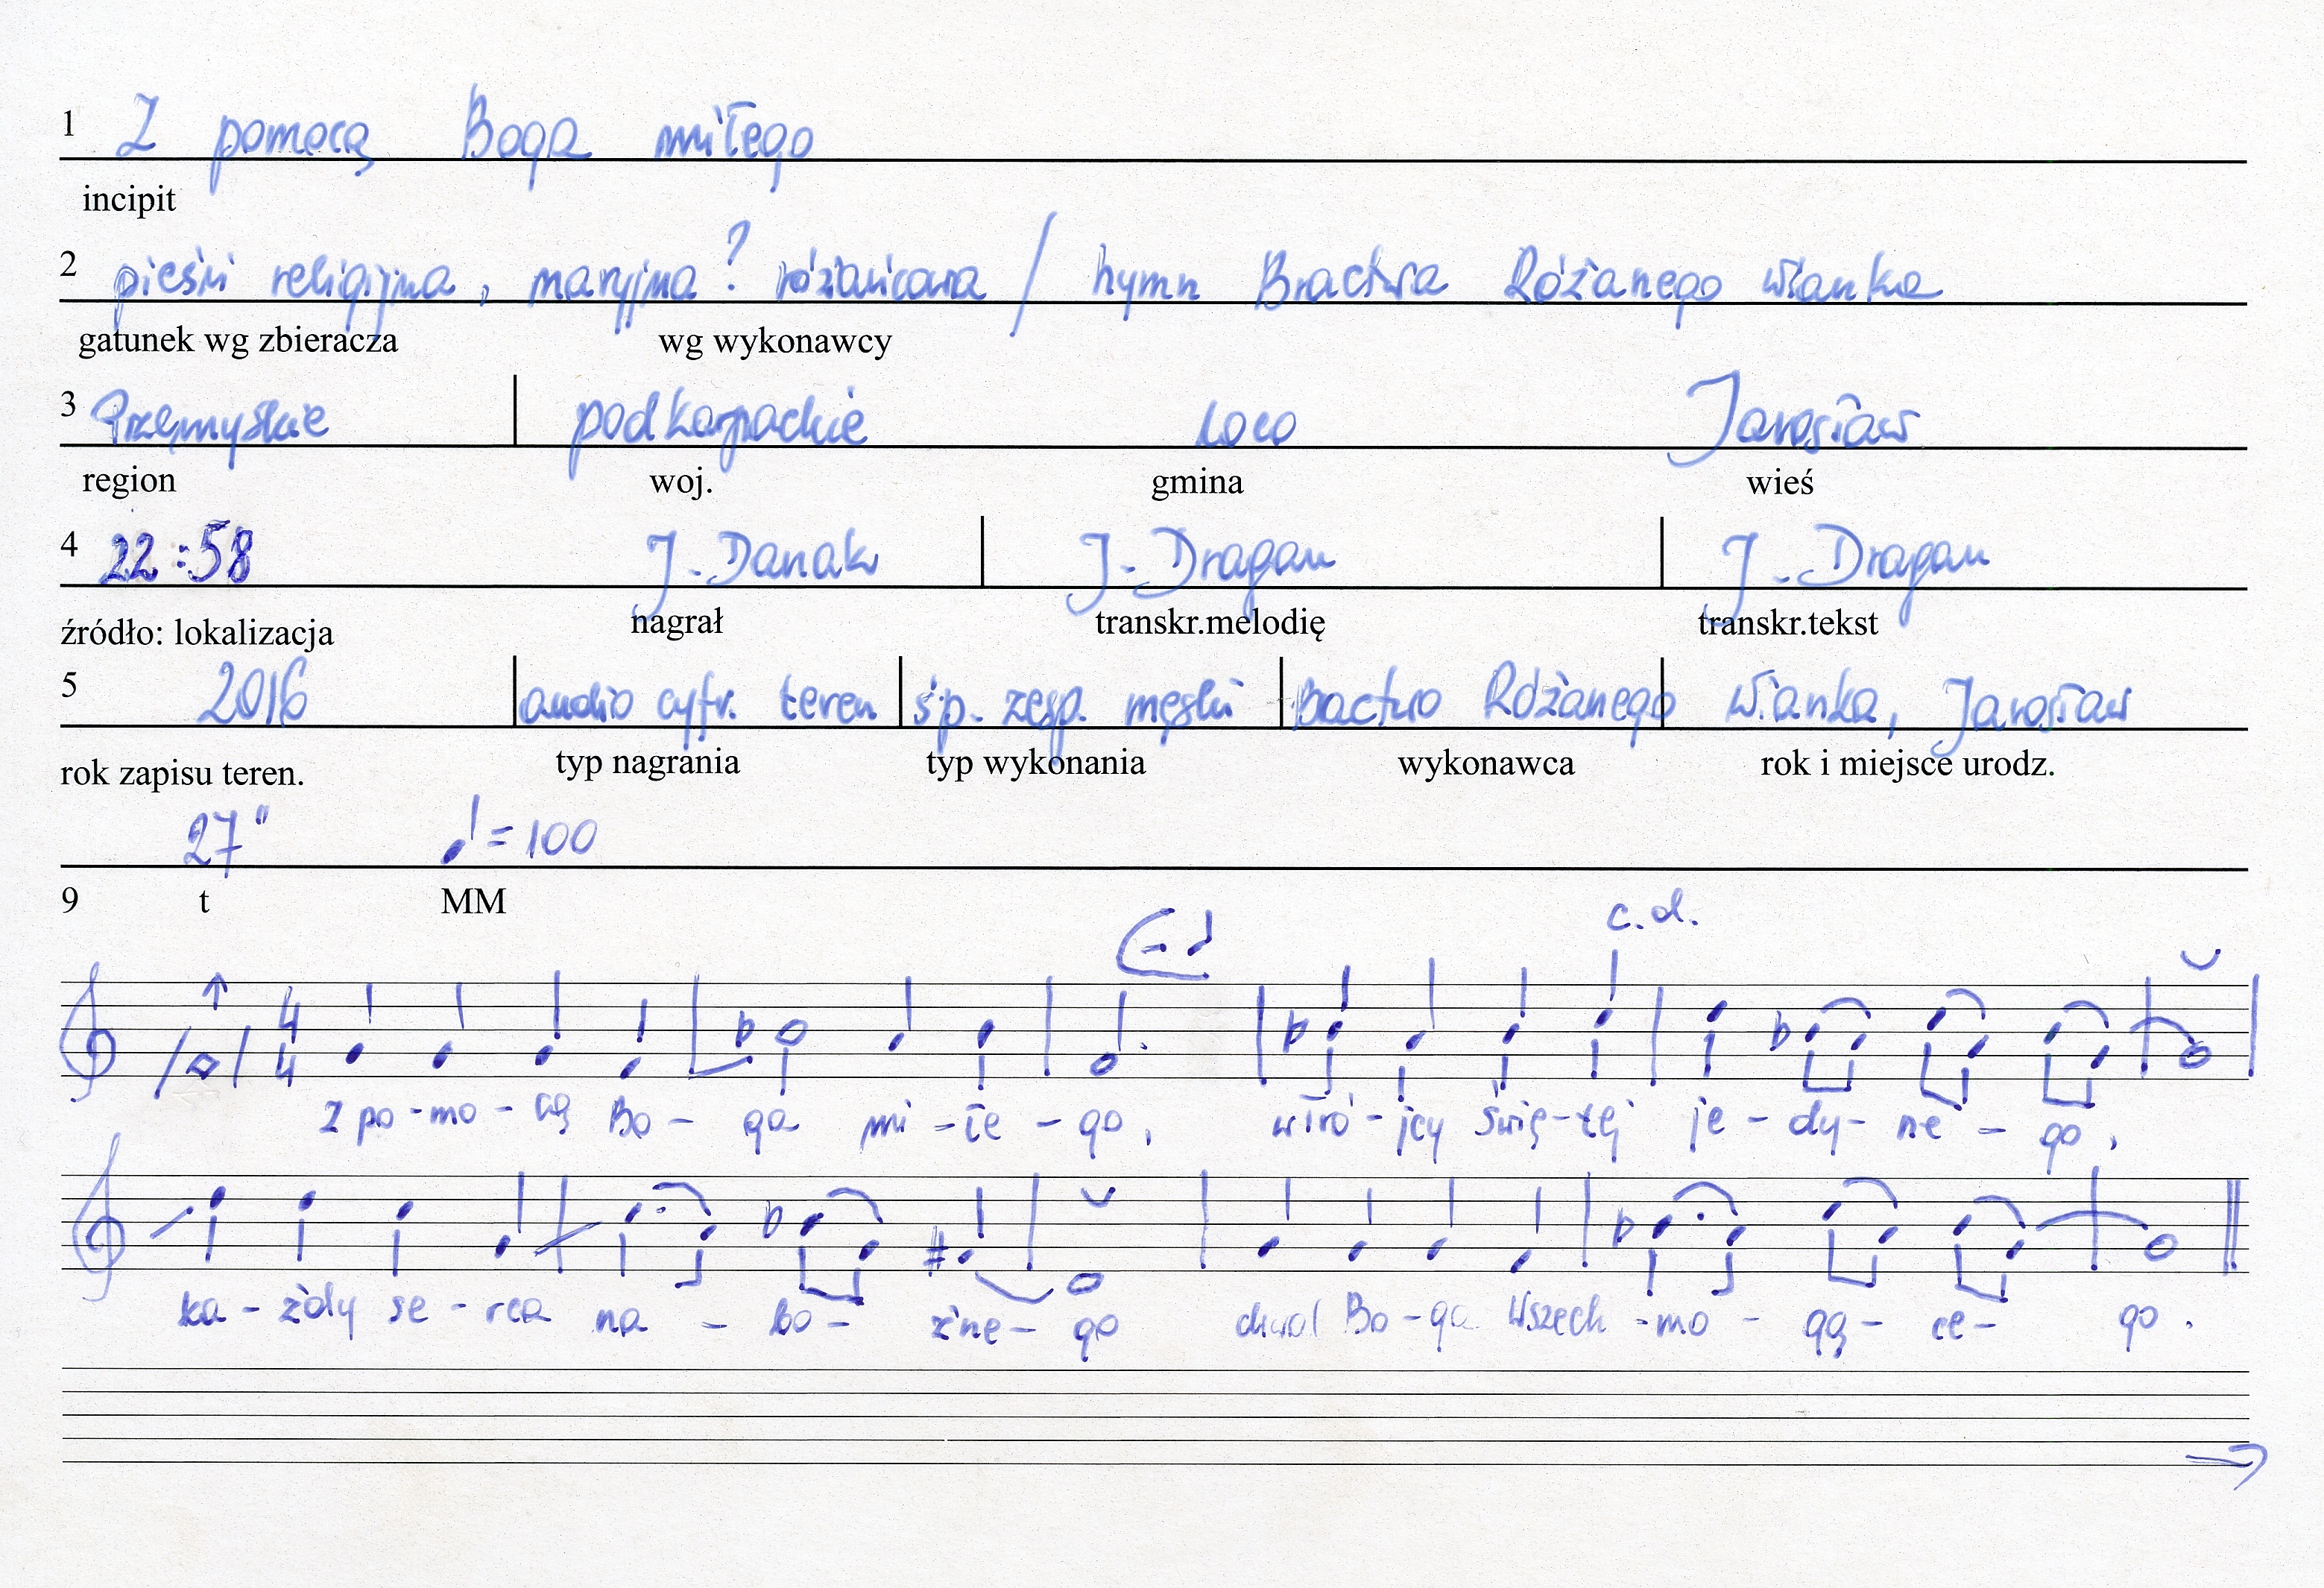 1 Z pomocą Boga miłego
incipit
2 pieśń religijna, maryjna? różańcowa / hymn Bractwa Różanego Wianka
gatunek wg zbieracza wg wykonawcy
3 Przemyskie podkarpackie loco Jarosław
region woj. gmina wieś
4 22:58 J. Danak J. Dragan J. Dragan
źródło: lokalizacja nagrał transkr.melodię transkr.tekst
5 2016 audio cyfr. teren śp. zesp. męski Bactwo Różanego Wianka, Jarosław
rok zapisu teren. typ nagrania typ wykonania wykonawca rok i miejsce urodz.
27" = 100
9 t MM
c.d.
4 4
Z po - mo - cą Bo - ga mi - łe - go, w tró - jcy świę - tej je - dy - ne - go,
ka - żdy se - rca na - bo - żne - go chwal Bo - ga Wszech - mo - gą - ce - go.